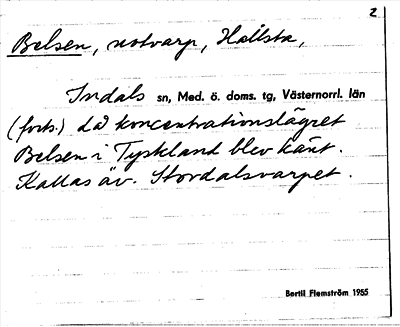 2
Belsen, notvarp, Hallsta,
Indals sn, Med. ö. doms. tg, Västernorrl. län
(forts.) då koncentrationslägret
Belsen i Tyskland blev känt.
Kallas äv. Stordalsvarpet.
Bertil Flemström 1955